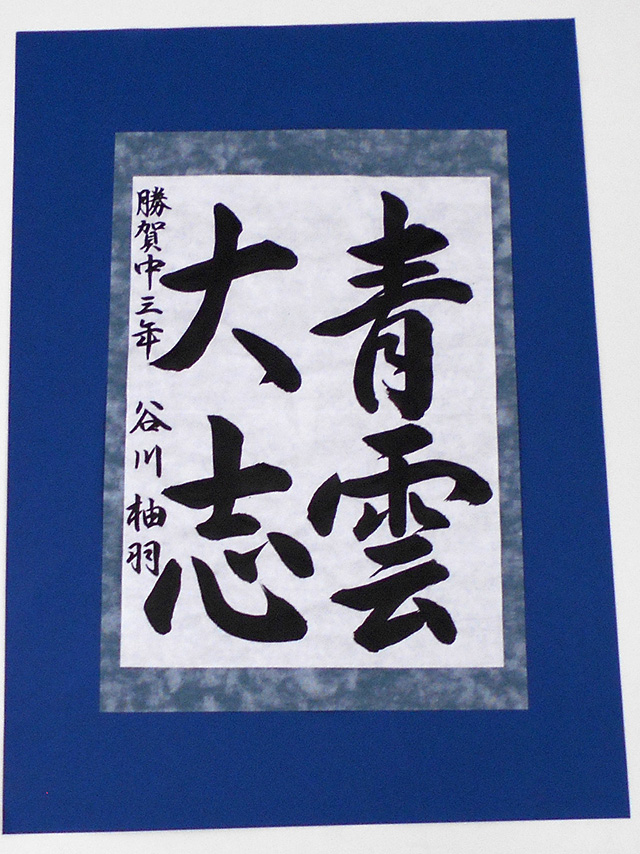 青雲
大志
勝賀中三年 谷川柚羽